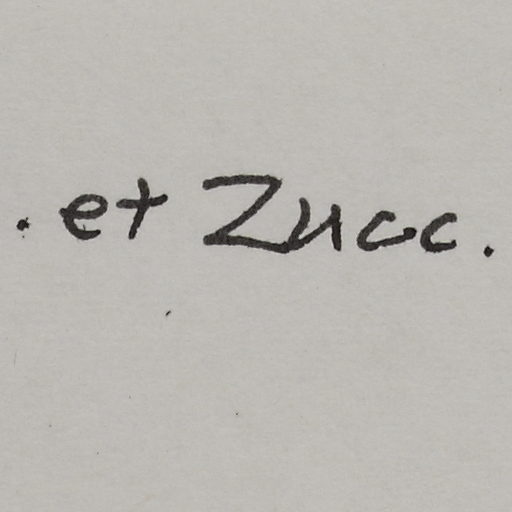 . et Zucc.